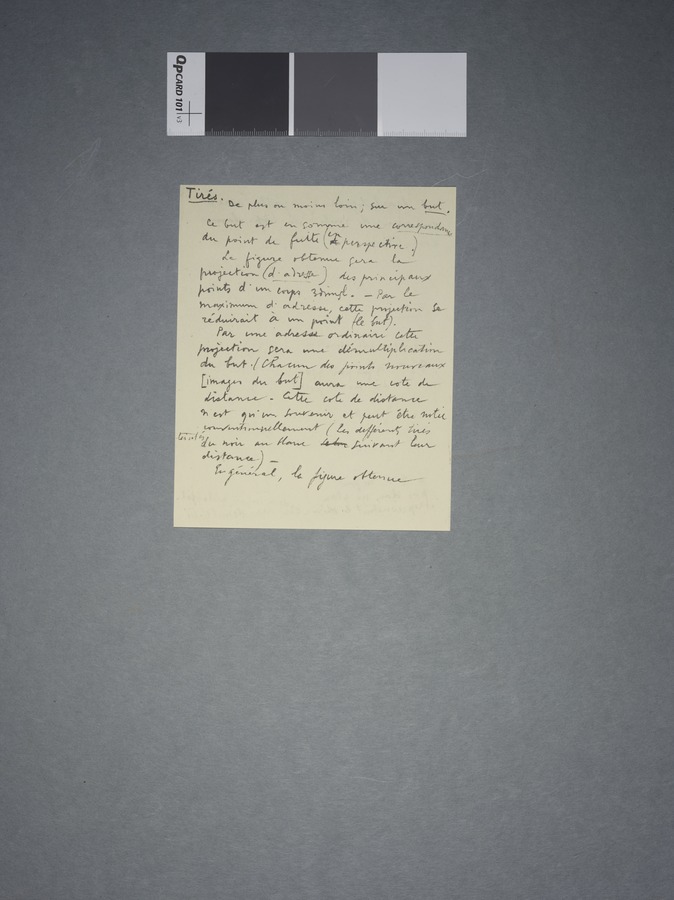 QPCARD 101 v3
Tirés.
De plus ou moins loin; sur un but.
Ce but est en somme une correspondance
du point de fuite (en perspective.)
La figure obtenue sera la
projection (d'adresse) des principaux
points d'un corps 3dimsl. — Par le
maximum d'adresse, cette projection se
réduirait à un point (le but).
Par une adresse ordinaire cette
projection sera une démultiplication
du but. (Chacun des points nouveaux
[images du but] aura une cote de
distance. Cette cote de distance
n'est qu'un souvenir et peut être notée
conventionnellement (les différents tirés
du noir au blanc suivant leur
distance) —
En général, la figure obtenue